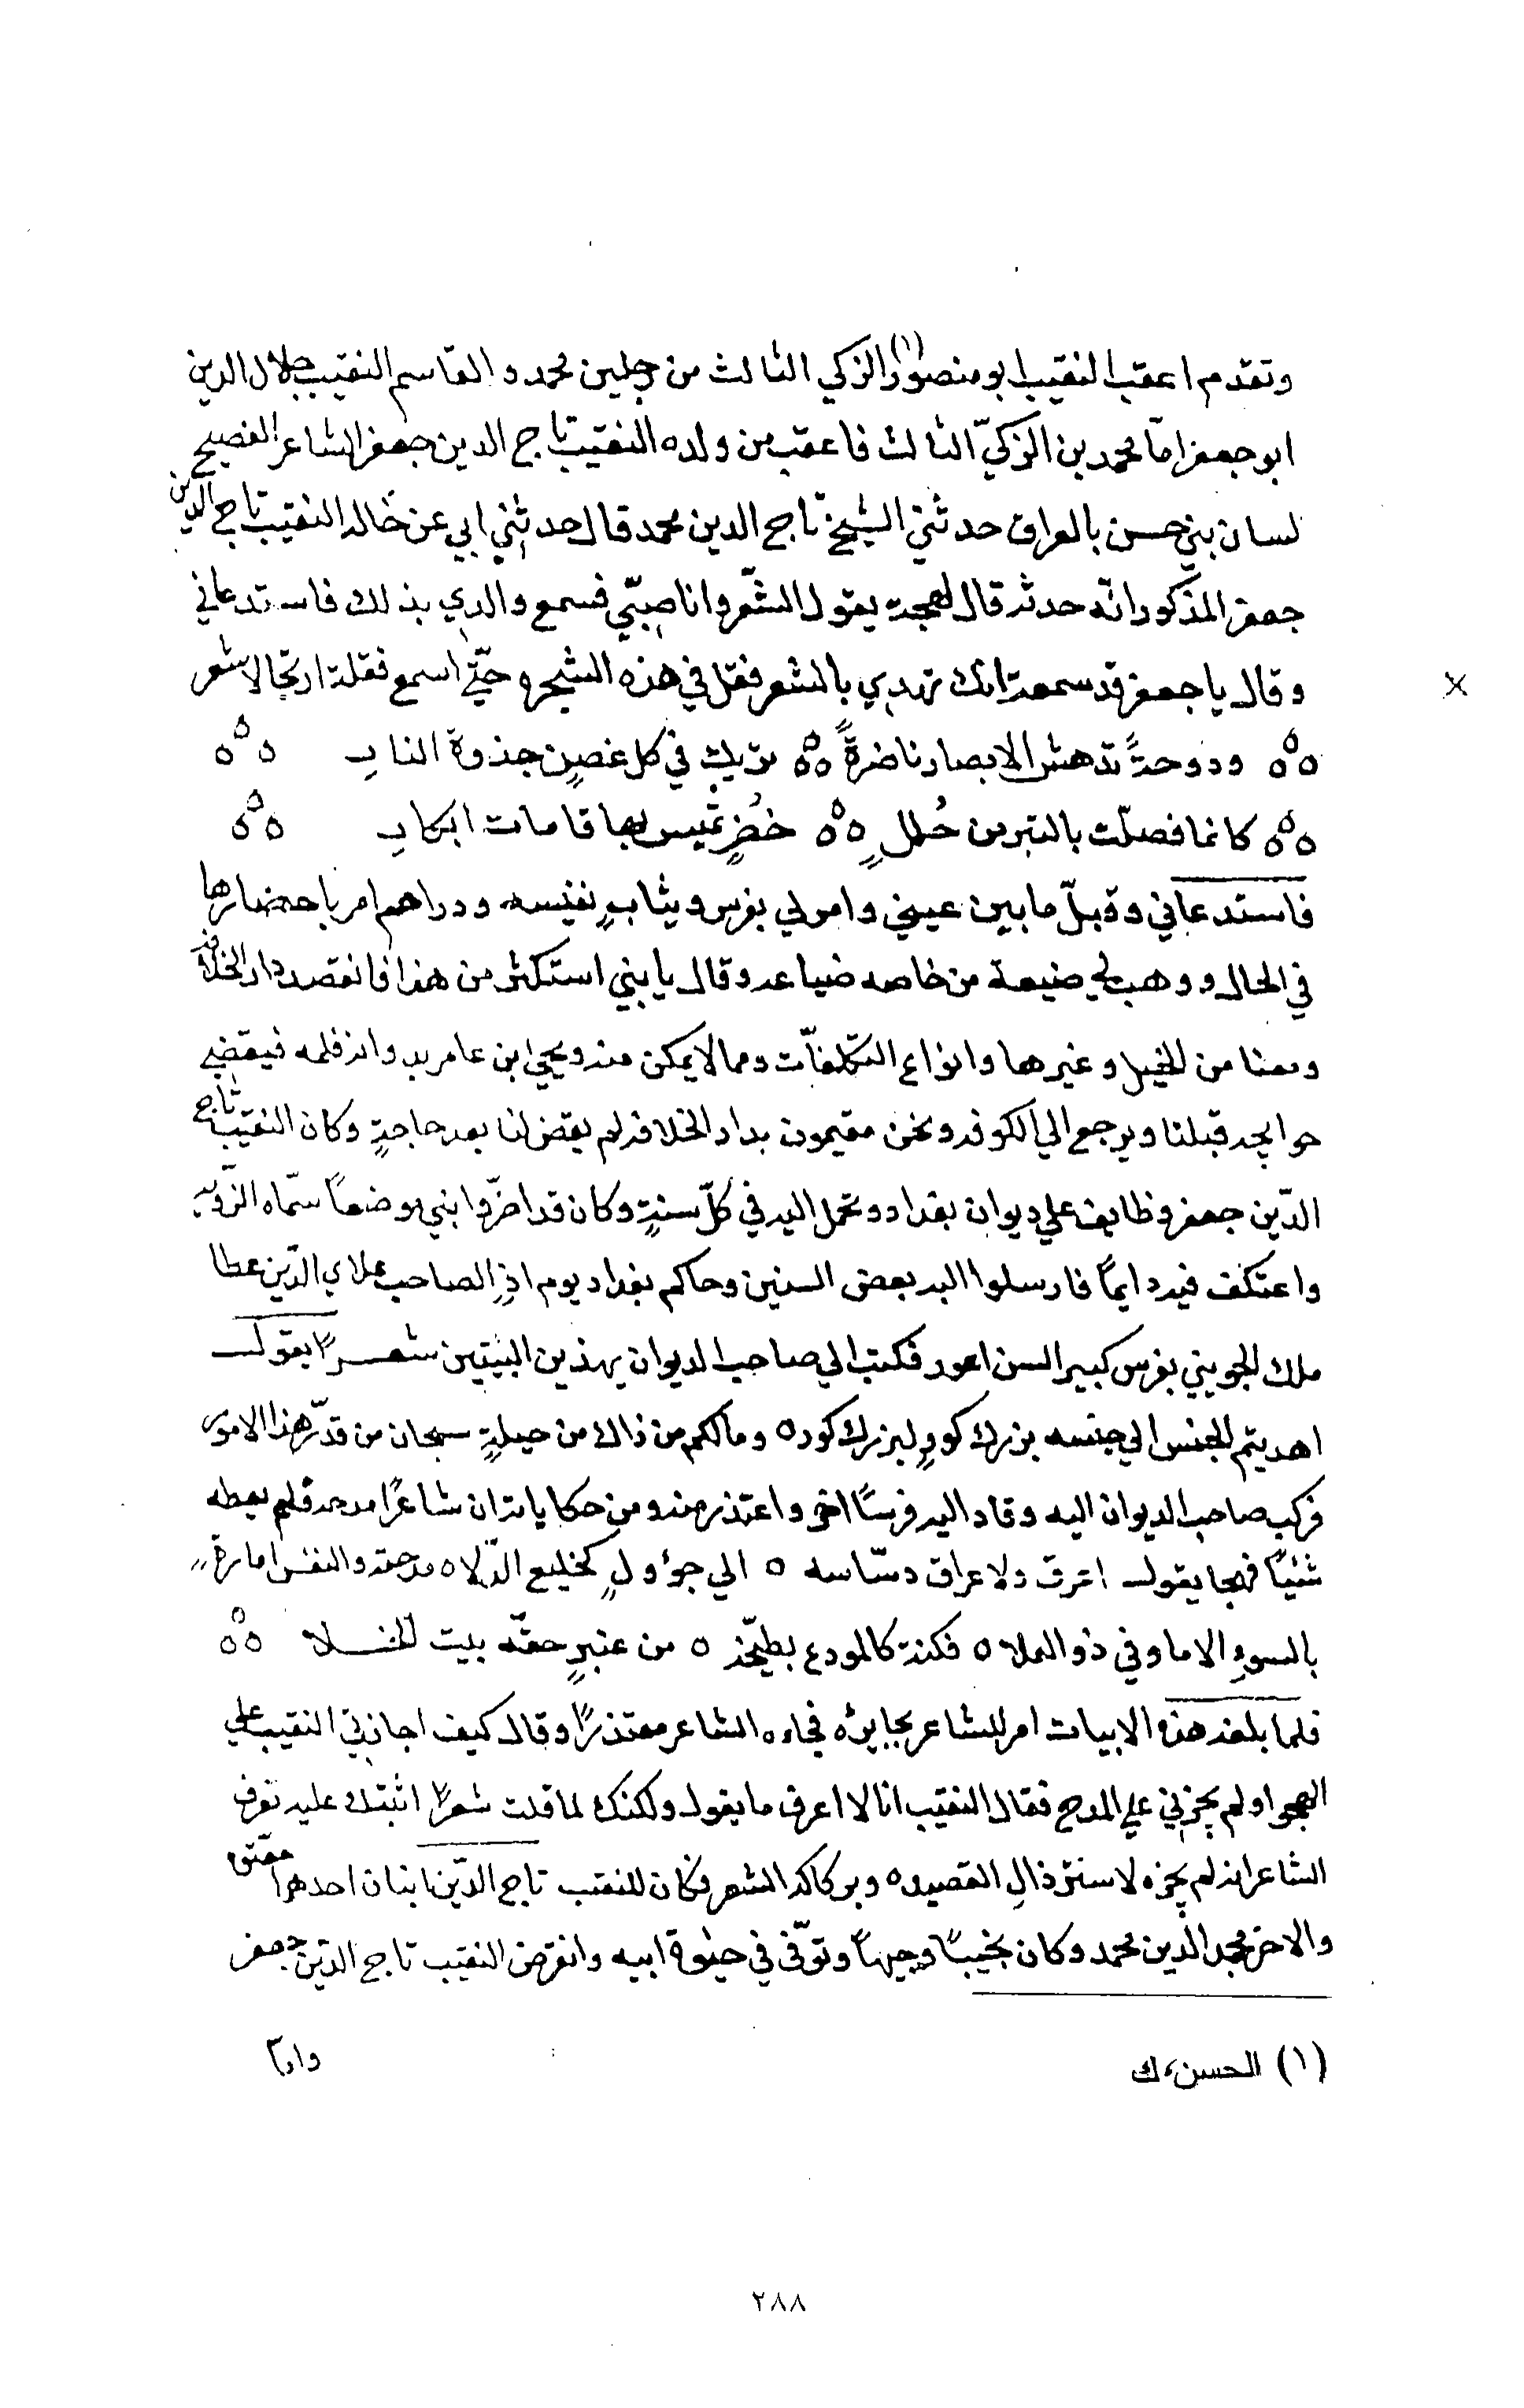 وتقدم اعقب النقيب ابو منصور(١) الزكي الثالث من رجلين محمد و القاسم النقيب جلال الدين
ابو جعفر امّا محمد بن الزكيّ الثالث فاعقب من ولده النقيب تاج الدين جعفر الشاعر الفصيح
لسان بني حسن بالعراق حدثني الشيخ تاج الدين محمد قال حدثني ابي عن خاله النقيب تاج الدين
جعفر المذكور انّه حدثه قال لهجت يقول الشّعر وانا صبيّ فسمع والدي بذلك فاستدعاني
وقال يا جعفر قد سمعت انك تهدي بالشعر فقل في هذه الشجره حتّي اسمع فقلت ارتجالا شعر
ودوحةً تدهش الابصار ناضرةً تريك في كل غصنٍ جذوة النارِ
كانما فصلّت بالتبر من حُللٍ خضرٍ تميس بها قامات ابكارِ
فاستدعاني وقبلّ ما بين عيني وامر لي بفرس وثيابٍ نفيسه ودراهم امر باحضارها
في الحال ووهب لي ضيعة من خاصه ضياعه وقال يا بني استكثر من هذا فانا نقصد دار الخلافه
ومعنا من الخيل وغيرها وانواع التكلفاّت مما لا يمكن منه ويجي ابن عامر بدواته وقلمه فيقضي
حوايجه قبلنا ويرجع الي الكوفه ونحن مقيمون بدار الخلافه لم يقض لنا بعد حاجةٍ وكان النقيب تاج
الدّين جعفر وظايف علي ديوان بغداد وتحمل اليه في كلّ سنةٍ وكان قد اضرّ وابني موضعاً سمّاه الزّويه
واعتكف فيه دايماً فارسلوا اليه بعض السنين وحاكم بغداد يوم اذٍ الصاحب علاي الدّين عطا
ملك الجويني بفرس كبير السن اعور فكتب الي صاحب الديوان بهذين البيتين شعــراً يقولـ
اهديتم الجنس الي جنسه بزرك كورٍ لبزرك كور ٥ ومالكم من ذاك من حيلةٍ سبحان من قدّر هذا الامور
فركب صاحب الديوان اليه وقاد اليه فرسًا اخر واعتذر منه ومن حكاياته ان شاعرًا مدحه فلم يعطه
شئيًا فهجا يقولـ اعرق ولاعراق دسّاسه ٥ الي جؤولٍ كخليع الدّلاه مدحته والنفس امارة
بالسوء الا ما وفي ذو العلا ٥ فكنت كالمودع بطيّخة ٥ من عنبرٍ حقّه بيت الخــلا
فلما بلغه هذه الابيات امر للشاعر بجايزه فجاءه الشاعر معتذراً وقال كيف اجازني النقيب علي
الهجو اولم يجزني علي المدح فقال النقيب انا لا اعرف ما يقول ولكنك لما قلت شعراً اثبتك عليه نعرف
الشاعر انه لم يجزه لاستر ذال القصيده وبركاكه الشعر فكان للنقب تاج الدّين ابنان احدهما معتق
والاخر مجد الدين محمد وكان نجيباً وجيهاً وتوّفي في حيوة ابيه وانقرض النقيب تاج الدّين جعفر
(١) الحسن، ك
٢٨٨